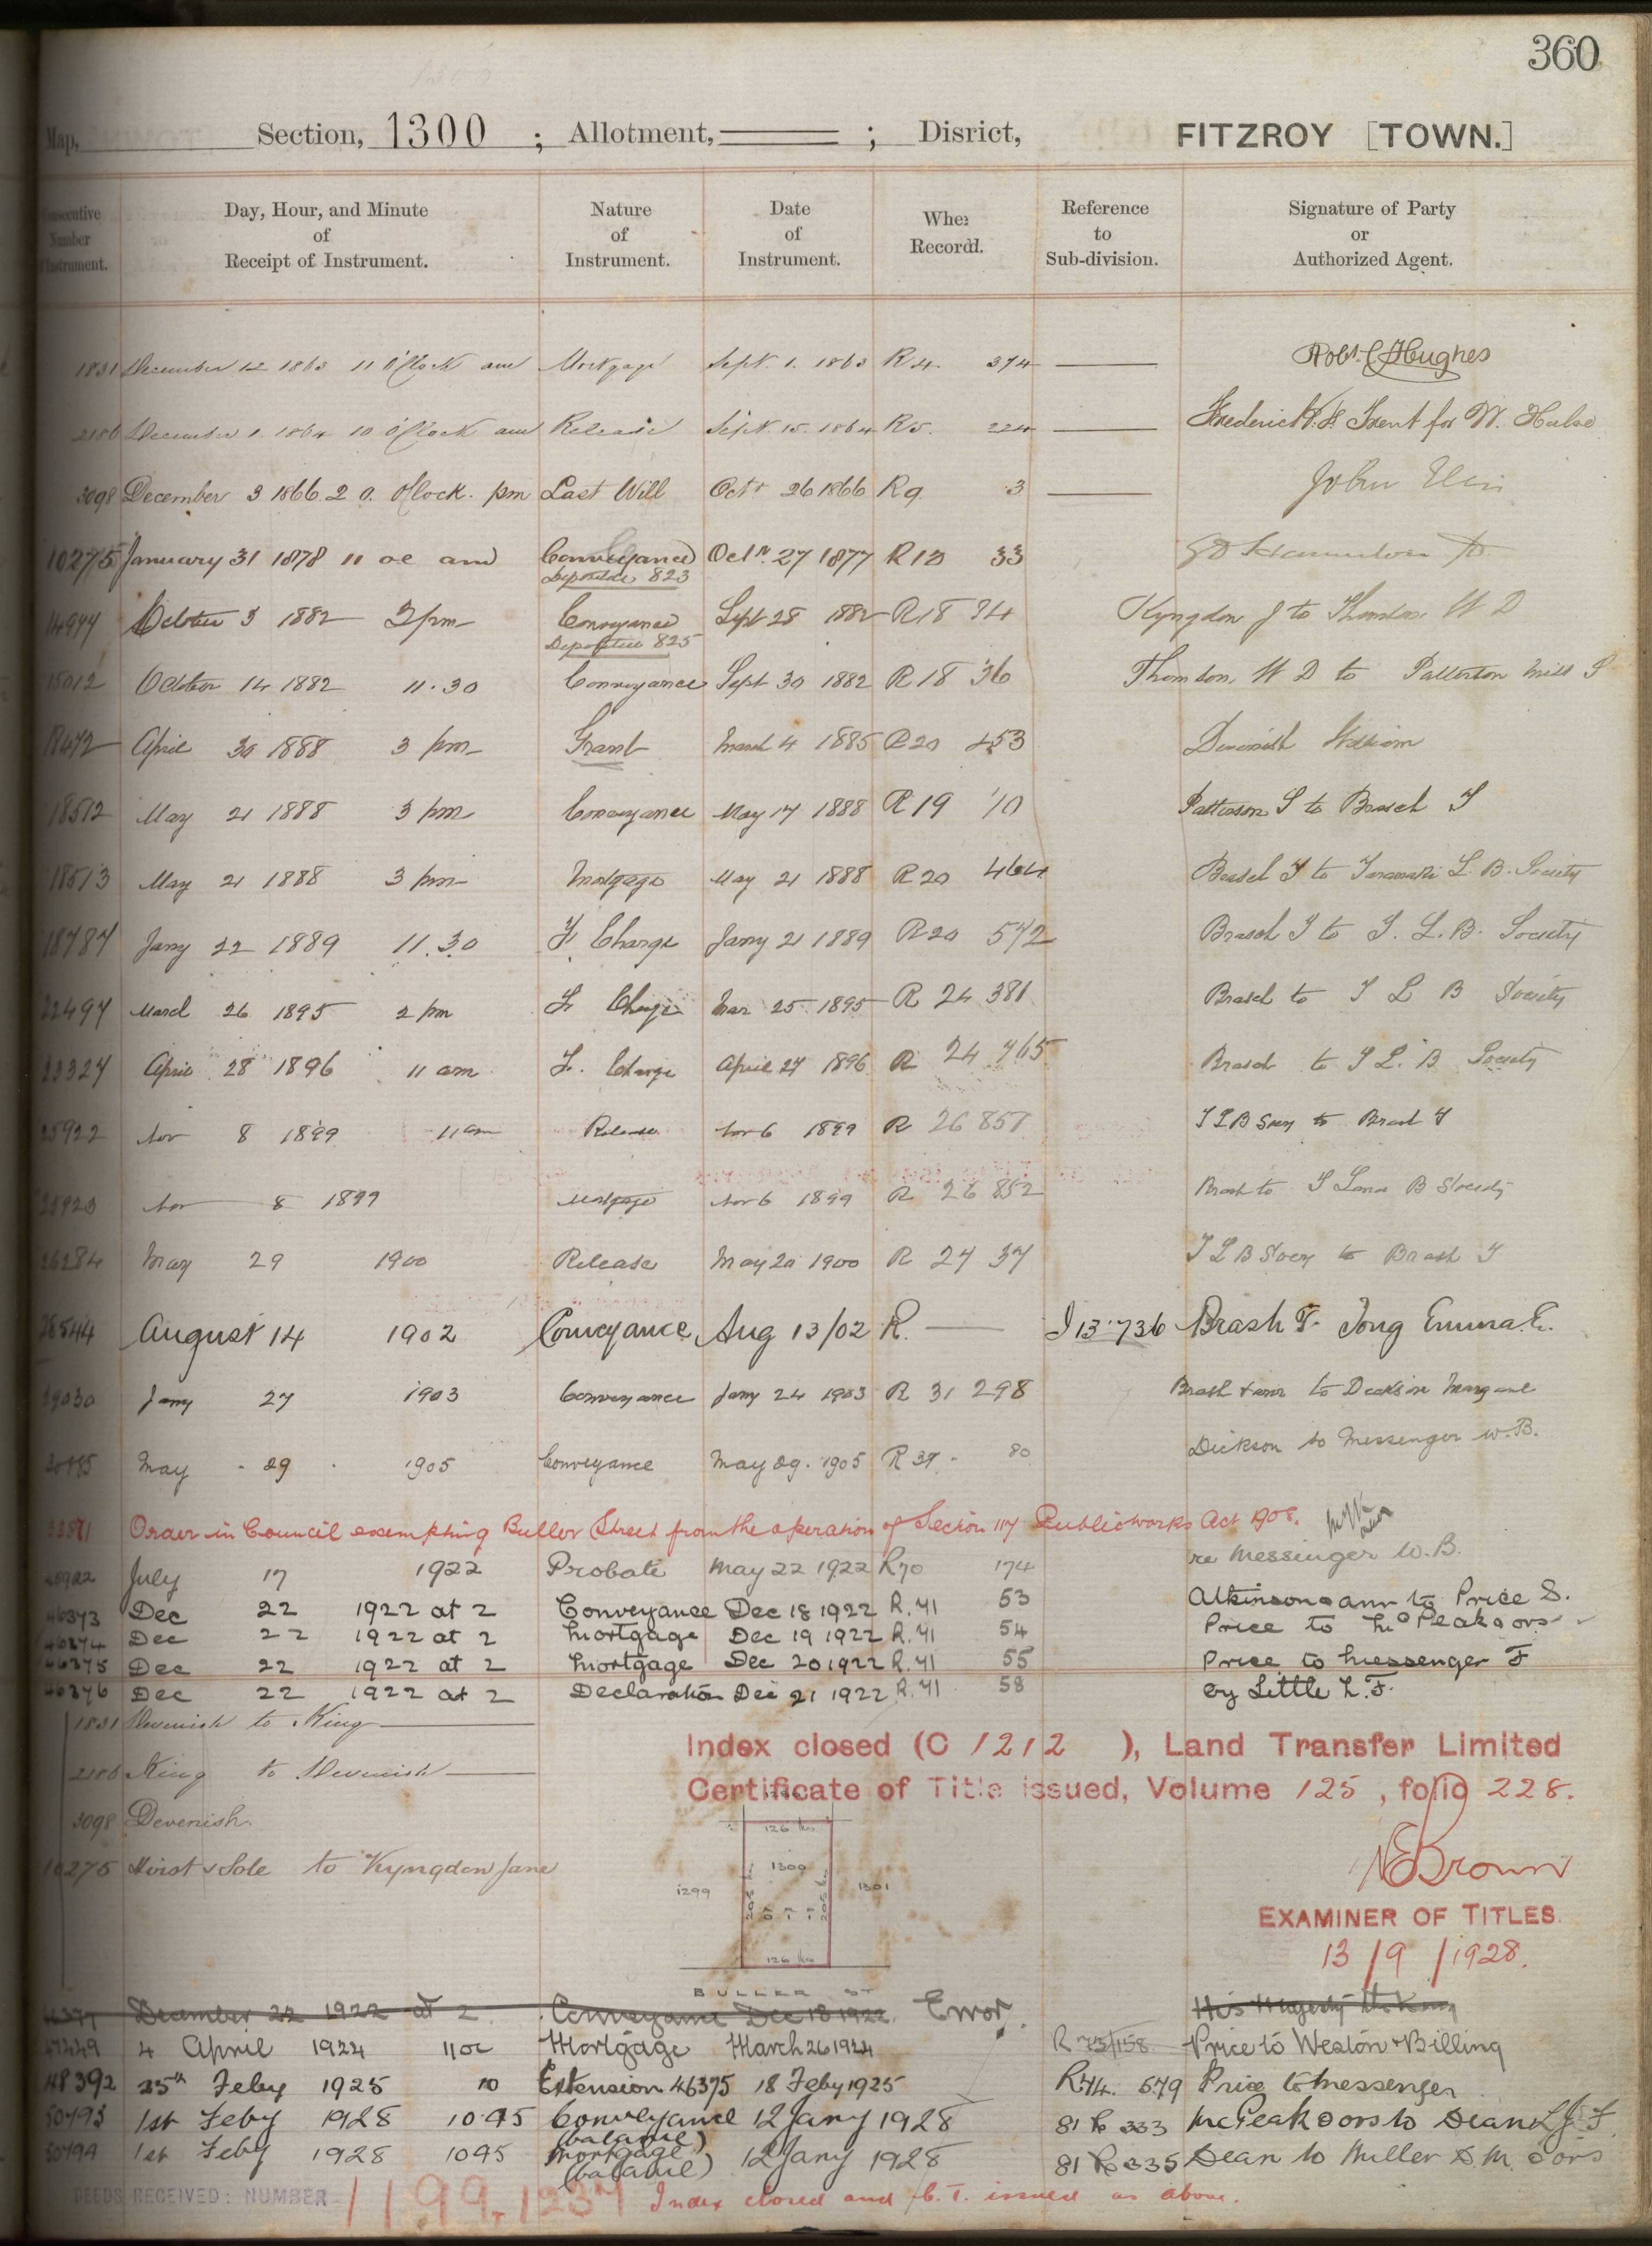 360
Map, Section, 1300 ; Allotment, ; Disrict, FITZROY [TOWN.]
Consecutive Number Instrument.
Day, Hour, and Minute of Receipt of Instrument.
Nature of Instrument.
Date of Instrument.
Whe: Record.
Reference to Sub-division.
Signature of Party or Authorized Agent.
1831 December 12 1863 11 O'Clock am Mortgage Sept. 1. 1863 R4. 374 Robt C Hughes
2186 December 1. 1864 10 O'Clock am Release Sept. 15. 1864 R5. 224 Frederick Trent for W. Halse
3098 December 3 1866 2 O. Clock. pm Last Will Octr 26 1866 R9. 3 John
10275 January 31 1878 11 oc am Conveyance Octr. 27 1877 R13 33
Deposited 823
14977 October 3 1882 2 pm Conveyance Sept 28 1882 R18 34 Kyngdon J to Thomson W D
Deposited 825
15012 October 14 1882 11.30 Conveyance Sept 30 1882 R18 36 Thomson, W D to Patterson
April 30 1888 3 pm Grant March 4 1885 R20 453 Devenish William
18512 May 21 1888 3 pm Conveyance May 17 1888 R19 70 Patterson S to Brasch T
18513 May 21 1888 3 pm Mortgage May 21 1888 R20 464 Brasch T to Taranaki L. B. Society
18787 Jany 22 1889 11.30 F. Charge Jany 21 1889 R20 572 Brasch T to T. L. B. Society
22497 March 26 1895 2 pm F. Charge Mar 25 1895 R 24 381 Brasch to T L B Society
23327 April 28 1896 11 am F. Charge April 27 1896 R 24 765 Brasch to T L. B Society
25922 Nov 8 1899 11 am Release Nov 6 1899 R 26 851 T L B Socy to Brash T
25923 Nov 8 1899 Mortgage Nov 6 1899 R 26 852 Brash to T Land B Society
26284 May 29 1900 Release May 20 1900 R 27 37 T L B Socy to Brash T
28544 August 14 1902 Conveyance Aug 13/02 R. I 13.736 Brash T. Tong Emma E.
29030 Jany 27 1903 Conveyance Jany 24 1903 R 31 298 Brash & anr to Dickson
May 29 1905 Conveyance May 29. 1905 R 37. 80 Dickson to Messenger W.B.
33871 Order in Council exempting Buller Street from the operation of Section 117 Public works Act 1908.
July 17 1922 Probate May 22 1922 R70 174 re Messenger W.B.
46373 Dec 22 1922 at 2 Conveyance Dec 18 1922 R.71 53 Atkinson & anr to Price S.
46374 Dec 22 1922 at 2 Mortgage Dec 19 1922 R.71 54 Price to McPeak & ors
46375 Dec 22 1922 at 2 Mortgage Dec 20 1922 R.71 55 Price to Messenger F
46376 Dec 22 1922 at 2 Declaration Dec 21 1922 R.71 58 by Little L.F.
1831 Devenish to King
2186 King to Devenish
3098 Devenish.
10275 Hirst & Sole to Kyngdon Jane
Index closed (C 1212 ), Land Transfer Limited
Certificate of Title issued, Volume 125 , folio 228.
126 lks
1300
1299
1301
205 lks
205 lks
126 lks
BULLER ST
N E Brown
EXAMINER OF TITLES.
13/9/1928.
46377 December 22 1922 at 2 Conveyance Dec 18 1922 Error. His Majesty the King
47249 4 April 1924 11 oc Mortgage March 26 1924 R 73/158 Price to Weston & Billing
48392 25th Feby 1925 10 Extension 46375 18 Feby 1925 R74. 579 Price to Messenger
50793 1st Feby 1928 10.45 Conveyance 12 Jany 1928 81 R 333 McPeak & ors to Dean L J F.
(balance)
50794 1st Feby 1928 1045 Mortgage 12 Jany 1928 81 R 335 Dean to Miller D. M. & ors
(balance)
DEEDS RECEIVED: NUMBER 1199, 1237 Index closed and C. T. issued as above.